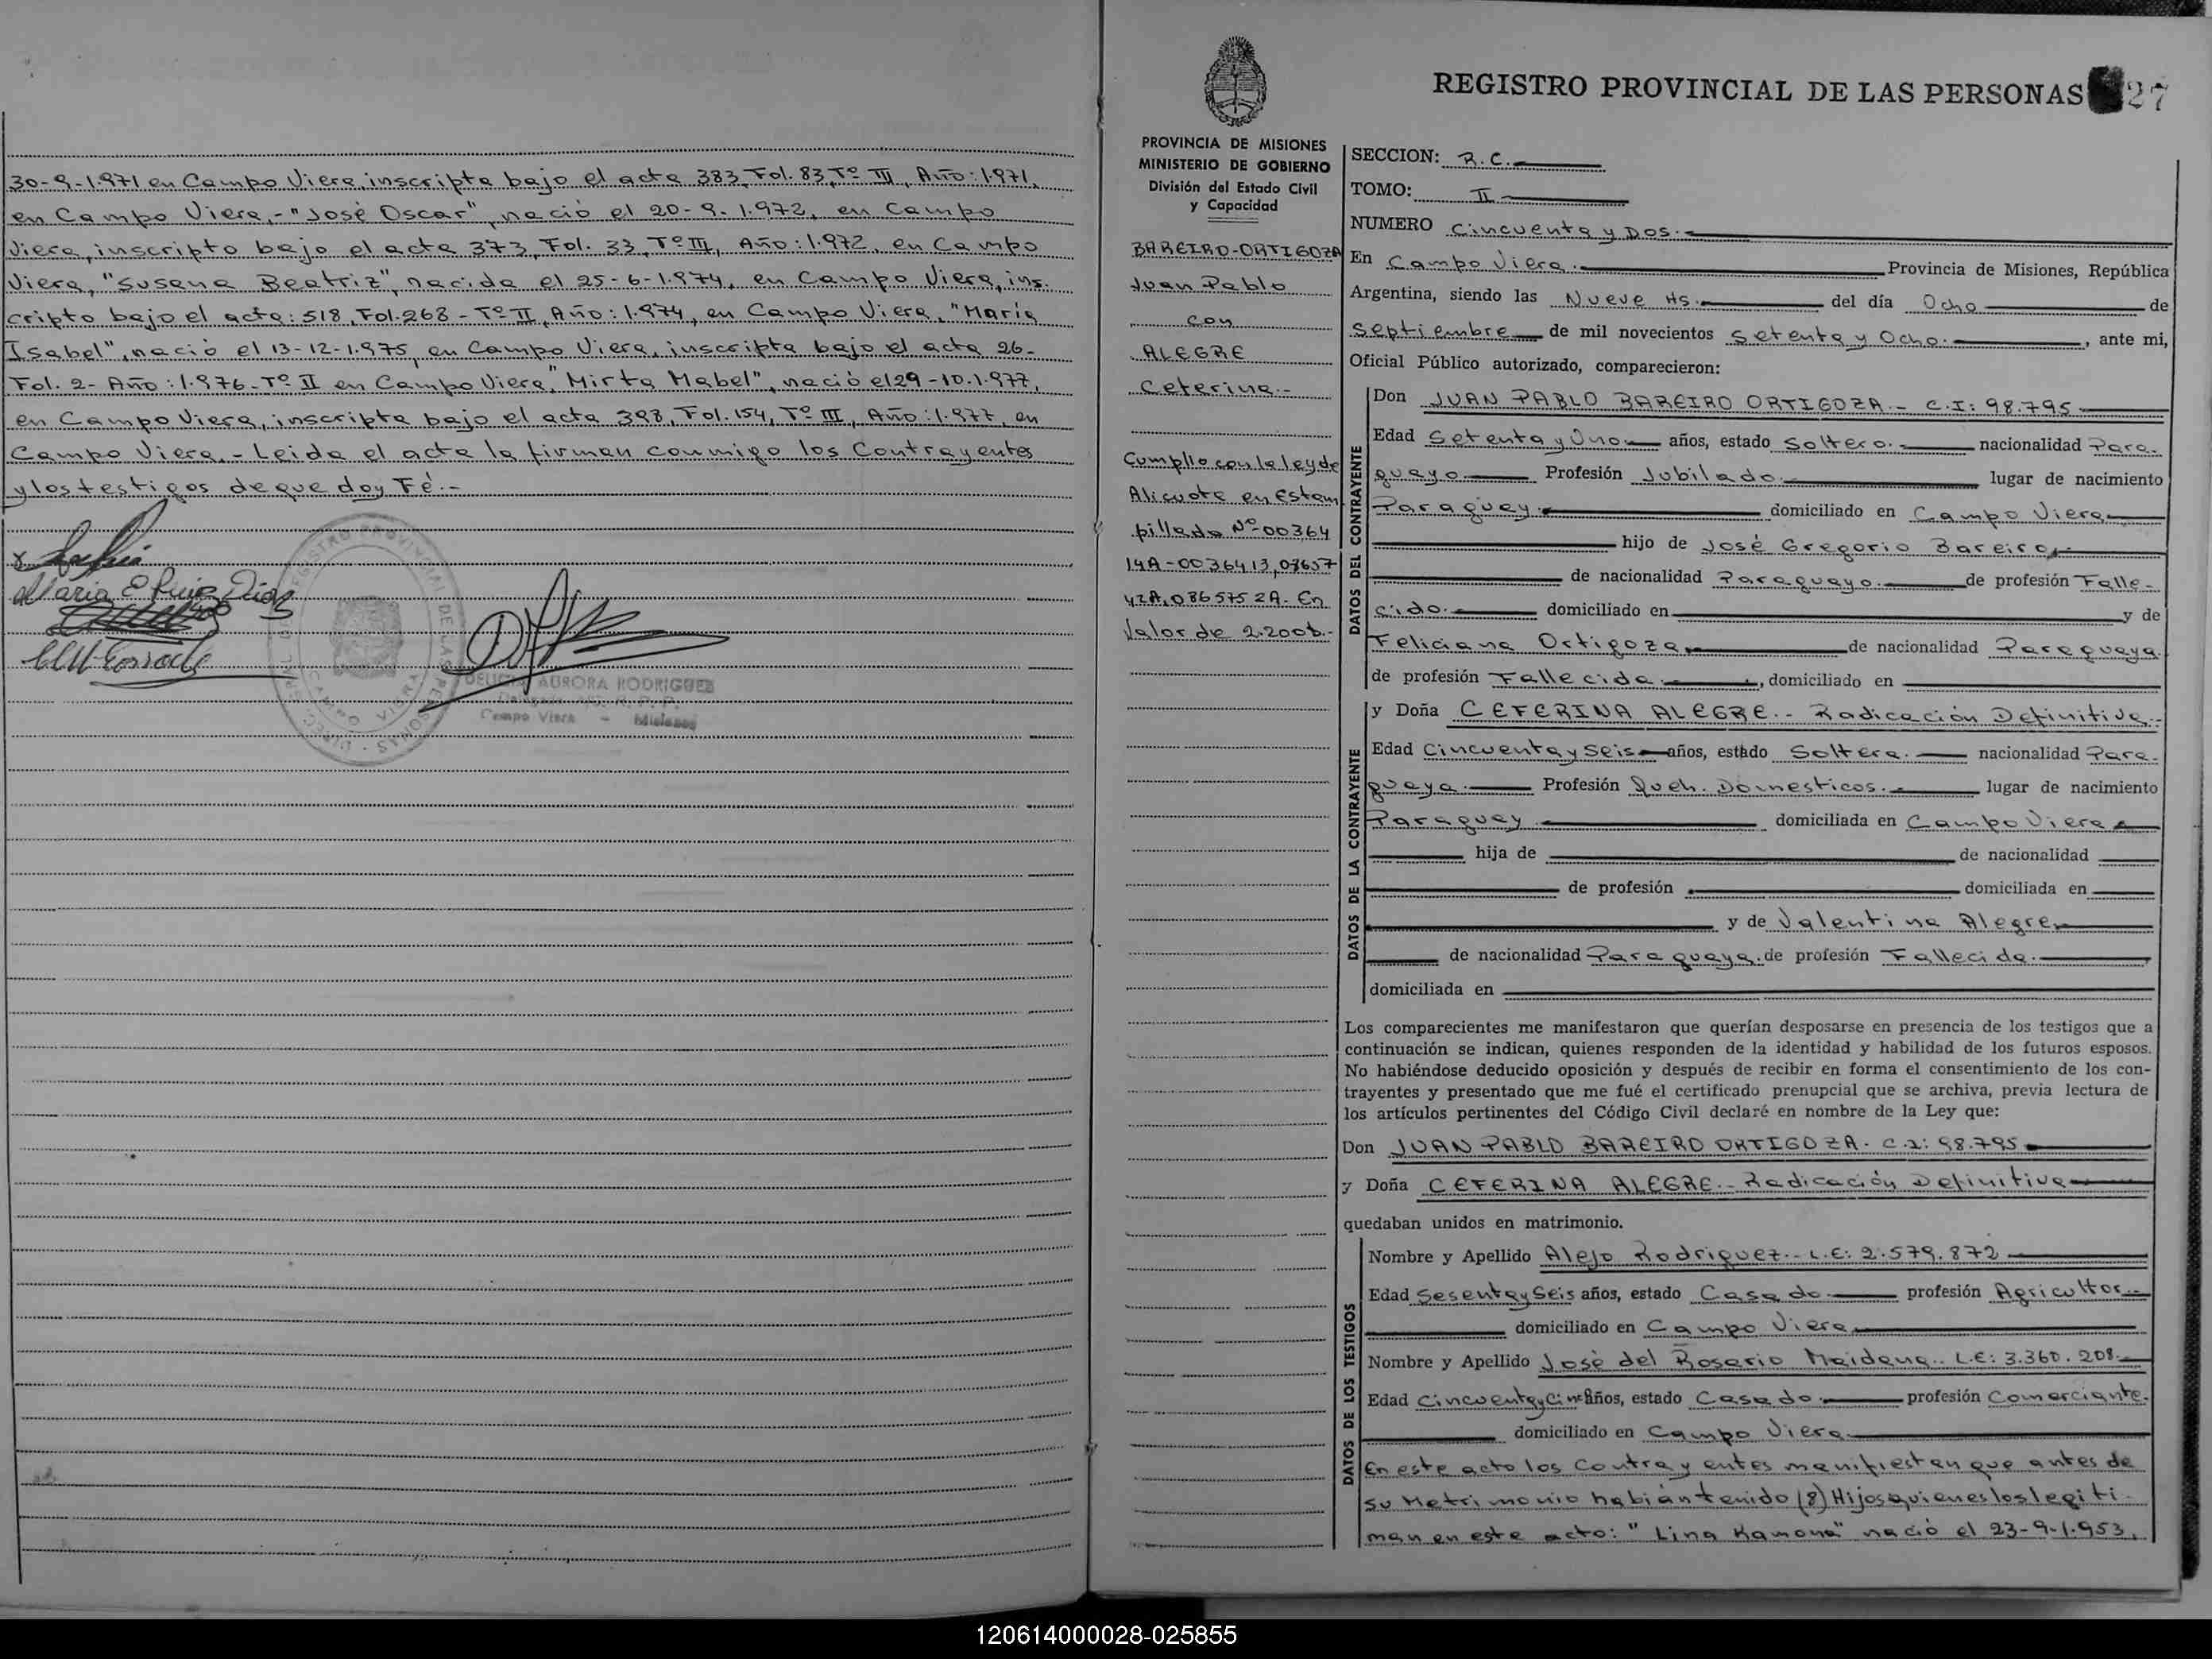 30-9-1.971 en Campo Viera, inscripta bajo el acta 383, Fol. 83, Tº III, Año: 1.971,
en Campo Viera,- "José Oscar", nació el 20-9-1.972, en Campo
Viera, inscripto bajo el acta 373, Fol. 33, Tº III, Año: 1.972, en Campo
Viera, "Susana Beatriz", nacida el 25-6-1.974, en Campo Viera, ins.
cripto bajo el acta: 518, Fol. 268- Tº II, Año: 1.974, en Campo Viera, "María
Isabel", nació el 13-12-1.975, en Campo Viera, inscripta bajo el acta 26-
Fol. 2- Año: 1.976- Tº II en Campo Viera, "Mirta Mabel", nació el 29-10-1.977,
en Campo Viera, inscripta bajo el acta 398, Fol. 154, Tº III, Año: 1.977, en
Campo Viera.- Leida el acta la firman conmigo los Contrayentes
y los testigos de que doy Fé.-
Maria E Ruiz Diaz
REGISTRO PROVINCIAL DE LAS PERSONAS
CAMPO VIERA
DELICIA AURORA RODRIGUEZ
Campo Viera - Misiones
REGISTRO PROVINCIAL DE LAS PERSONAS 27
PROVINCIA DE MISIONES
MINISTERIO DE GOBIERNO
División del Estado Civil
y Capacidad
BAREIRO-ORTIGOZA
Juan Pablo
con
ALEGRE
Ceferina.-
Cumplio con la ley de
Alicuota en Estam
pillado Nº 00364
14A-0036413,08657
42A,0865752A. En
Valor de 2.200$.-
SECCION: R.C.
TOMO: II
NUMERO Cincuenta y Dos.-
En Campo Viera.- Provincia de Misiones, República
Argentina, siendo las Nueve Hs. del día Ocho de
Septiembre de mil novecientos Setenta y Ocho.-, ante mi,
Oficial Público autorizado, comparecieron:
DATOS DEL CONTRAYENTE
Don JUAN PABLO BAREIRO ORTIGOZA.- C.I: 98.795
Edad Setenta y Uno años, estado Soltero.- nacionalidad Para-
guayo.- Profesión Jubilado.- lugar de nacimiento
Paraguay.- domiciliado en Campo Viera
hijo de José Gregorio Bareiro,-
de nacionalidad Paraguayo.- de profesión Falle-
cido.- domiciliado en y de
Feliciana Ortigoza de nacionalidad Paraguaya
de profesión Fallecida.-, domiciliado en
DATOS DE LA CONTRAYENTE
y Doña CEFERINA ALEGRE.- Radicación Definitiva.-
Edad Cincuenta y Seis años, estado Soltera.- nacionalidad Para-
guaya.- Profesión Queh. Domesticos.- lugar de nacimiento
Paraguay domiciliada en Campo Viera
hija de de nacionalidad
de profesión domiciliada en
y de Valentina Alegre
de nacionalidad Paraguaya. de profesión Fallecida.-
domiciliada en
Los comparecientes me manifestaron que querían desposarse en presencia de los testigos que a
continuación se indican, quienes responden de la identidad y habilidad de los futuros esposos.
No habiéndose deducido oposición y después de recibir en forma el consentimiento de los con-
trayentes y presentado que me fué el certificado prenupcial que se archiva, previa lectura de
los artículos pertinentes del Código Civil declaré en nombre de la Ley que:
Don JUAN PABLO BAREIRO ORTIGOZA. C.I: 98.795
y Doña CEFERINA ALEGRE.- Radicación Definitiva
quedaban unidos en matrimonio.
DATOS DE LOS TESTIGOS
Nombre y Apellido Alejo Rodriguez.- L.E: 2.579.872
Edad Sesenta y Seis años, estado Casado profesión Agricultor.-
domiciliado en Campo Viera
Nombre y Apellido José del Rosario Maidana.. L.E: 3.360.208.-
Edad Cincuenta y Cinco años, estado Casado.- profesión Comerciante.
domiciliado en Campo Viera
En este acto los Contrayentes manifiestan que antes de
su Matrimonio habían tenido (8) Hijos quienes los legiti-
man en este acto: "Lina Ramona" nació el 23-9-1.953,
120614000028-025855